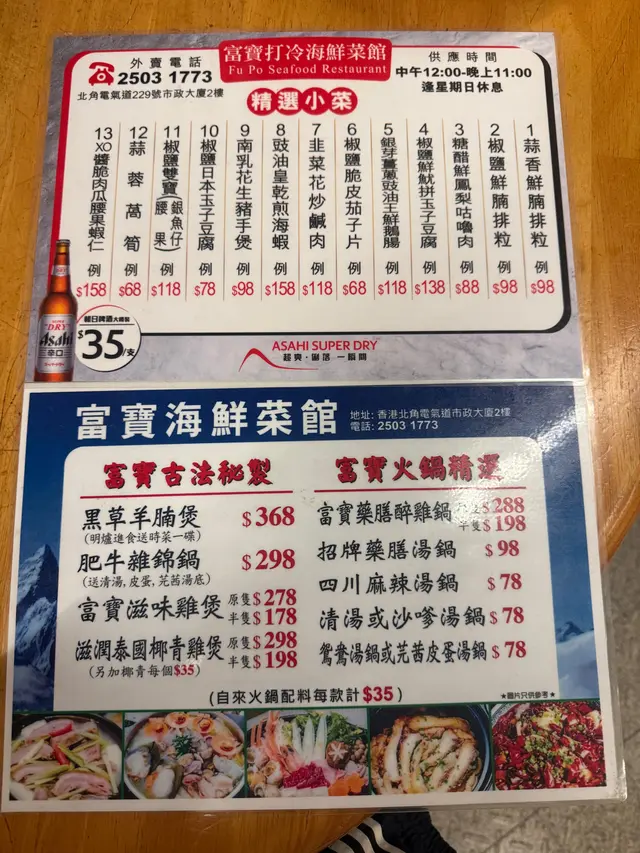 外賣電話
2503 1773
北角電氣道229號市政大廈2樓
富寶打冷海鮮菜館
Fu Po Seafood Restaurant
供應時間
中午12:00-晚上11:00
逢星期日休息
精選小菜
1 蒜香鮮腩排粒 例 $98
2 椒鹽鮮腩排粒 例 $98
3 糖醋鮮鳳梨咕嚕肉 例 $88
4 椒鹽鮮魷拼玉子豆腐 例 $138
5 銀芽薑蔥豉油王鮮鵝腸 例 $118
6 椒鹽脆皮茄子片 例 $68
7 韮菜花炒鹹肉 例 $118
8 豉油皇乾煎海蝦 例 $158
9 南乳花生豬手煲 例 $98
10 椒鹽日本玉子豆腐 例 $78
11 椒鹽雙寶(銀魚仔腰果) 例 $118
12 蒜蓉萵筍 例 $68
13 XO醬脆肉瓜腰果蝦仁 例 $158
朝日啤酒大樽裝
$35/支
Asahi
辛口
ASAHI SUPER DRY
超爽·剔落 一瞬間
富寶海鮮菜館
地址: 香港北角電氣道市政大廈2樓
電話: 2503 1773
富寶古法秘製
黑草羊腩煲 $368
(明爐進食送時菜一碟)
肥牛雜錦鍋 $298
(送清湯,皮蛋,芫茜湯底)
富寶滋味雞煲 原隻$278
半隻$178
滋潤泰國椰青雞煲 原隻$298
半隻$198
(另加椰青每個$35)
富寶火鍋精選
富寶藥膳醉雞鍋 $288
半隻$198
招牌藥膳湯鍋 $98
四川麻辣湯鍋 $78
清湯或沙嗲湯鍋 $78
鴛鴦湯鍋或芫茜皮蛋湯鍋 $78
(自來火鍋配料每款計$35)
★圖片只供參考★